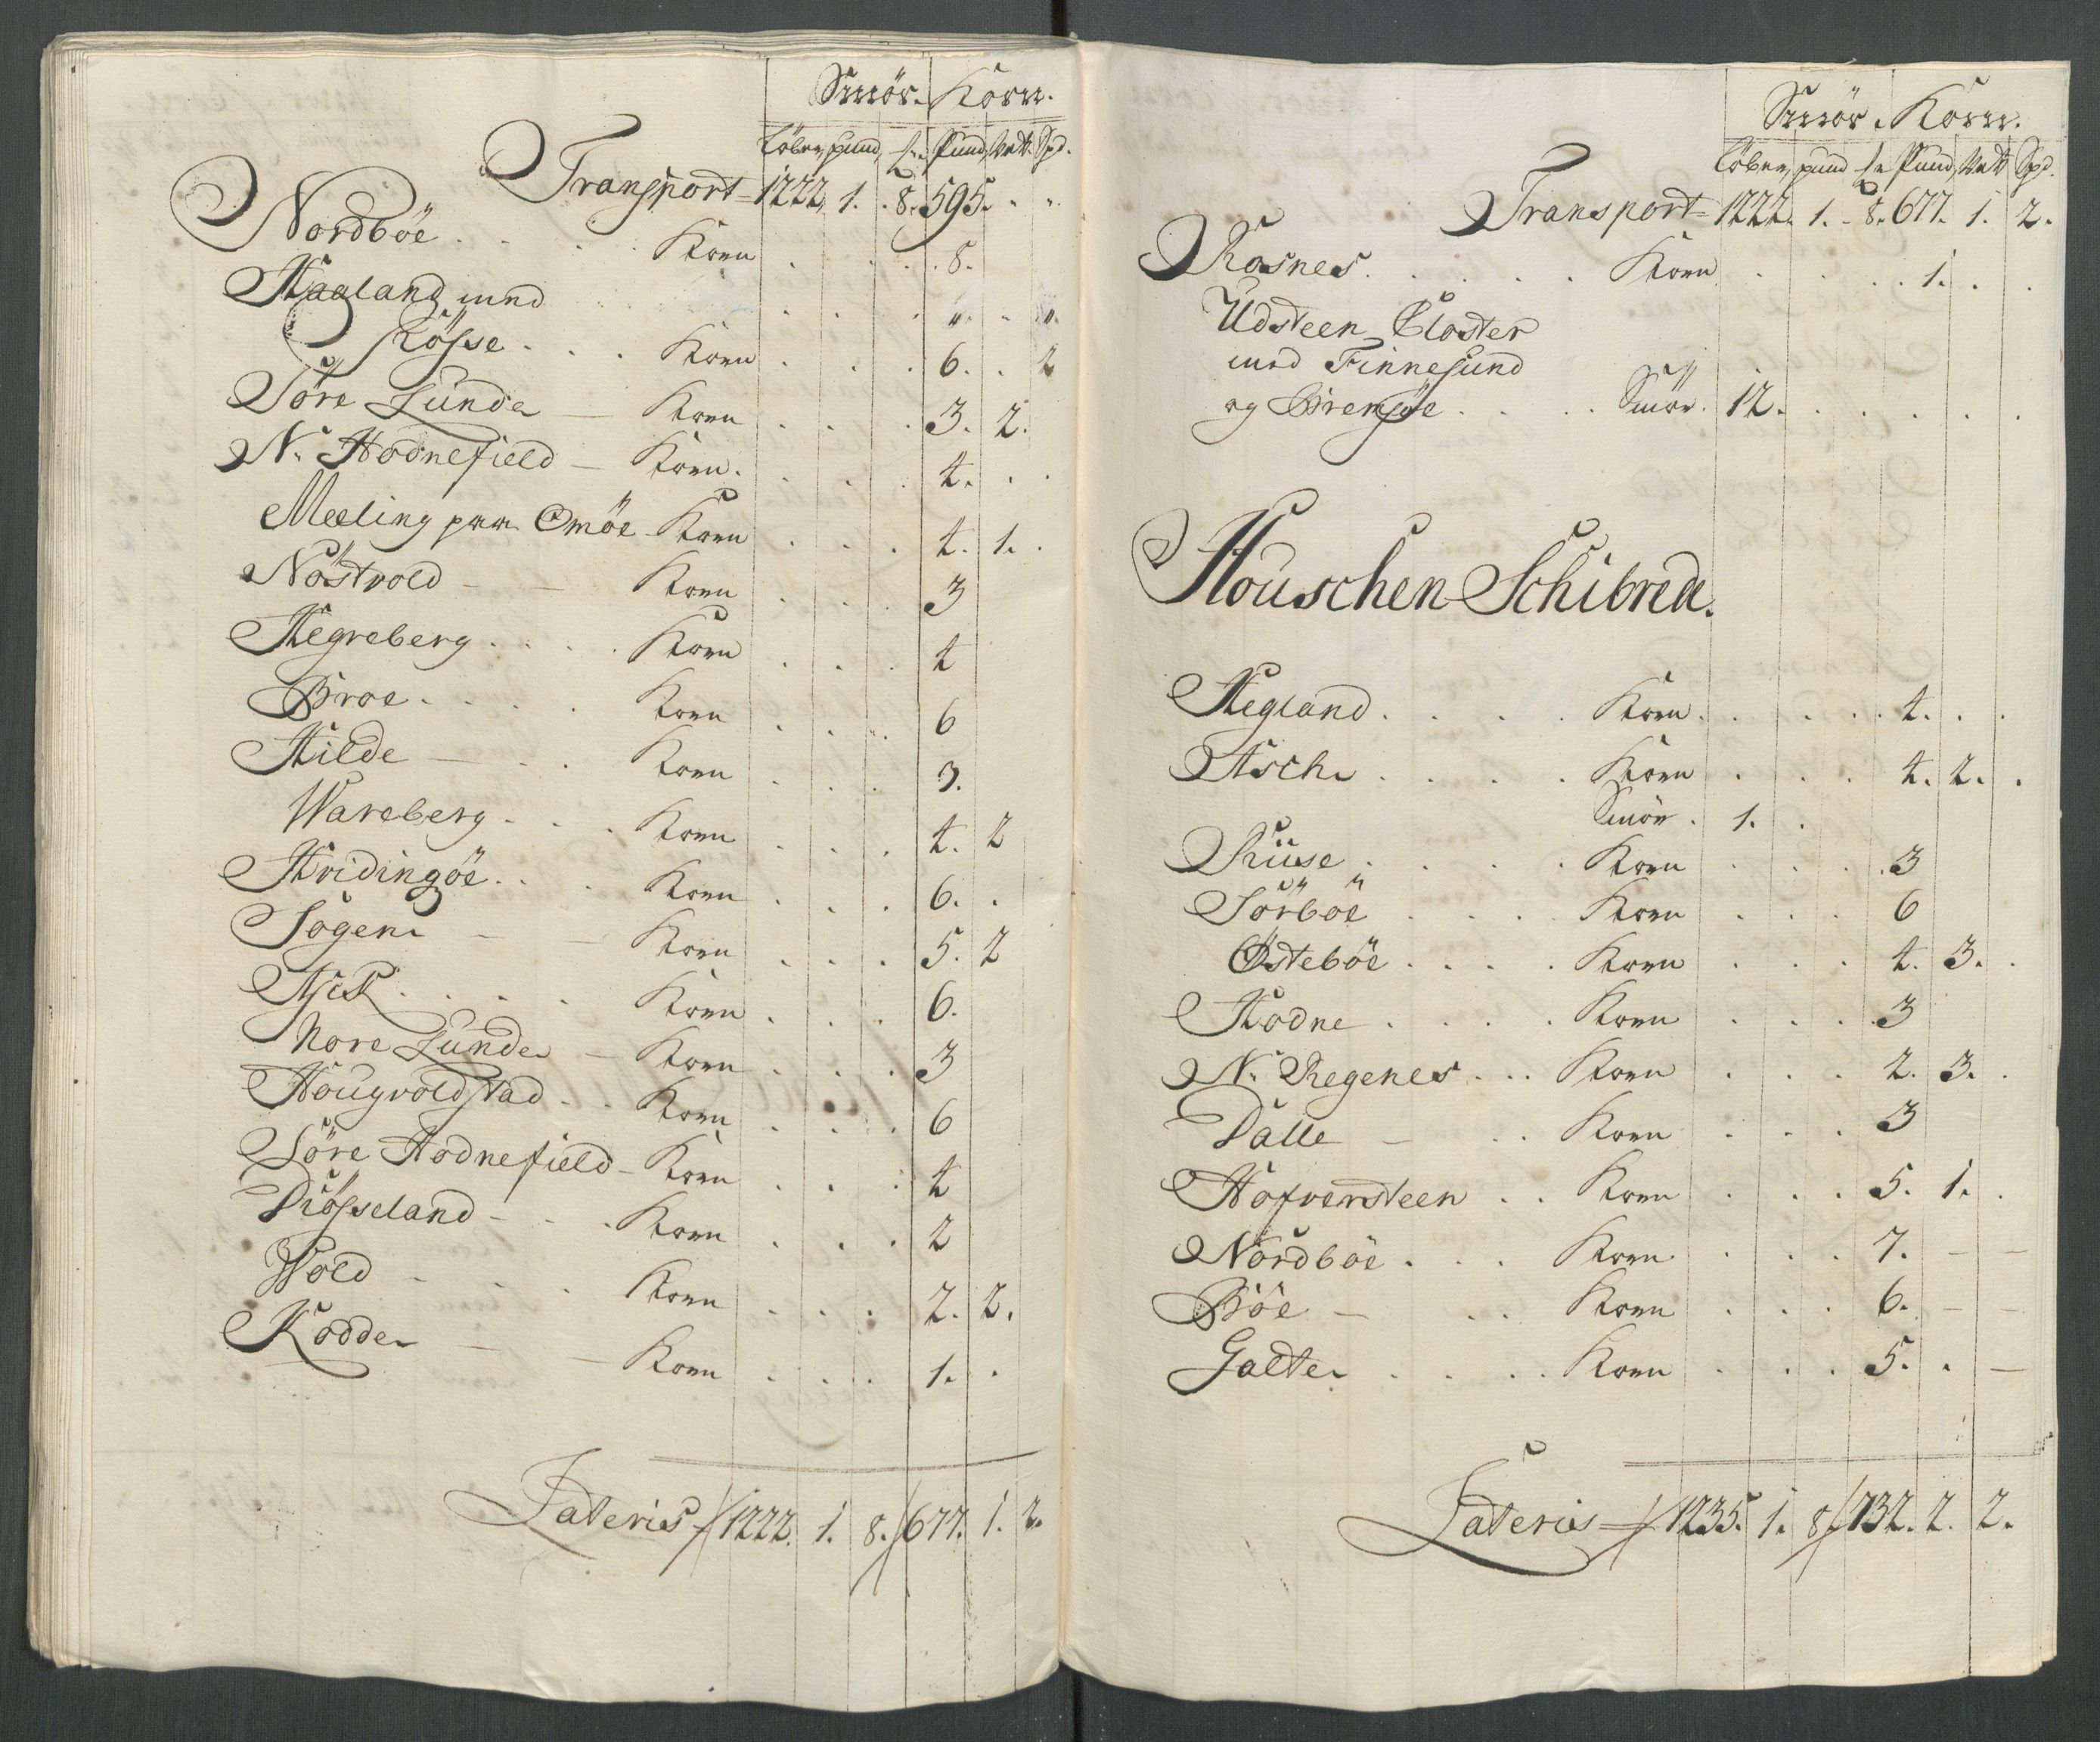 Smör. Korn.
Löber, pund, Pund, Vett. Spd.
Transport = 1222. 1. 8. 595. " "
Nordböe . . . Korn . . . 8.
Haaland med . . . " . "
Rösse . . . Korn . . . 6. . 2
Söre Lunde — Korn . . . 3. 2.
N. Hodnefield — Korn . . . 4. . .
Meeling paa Omöe Korn . . . 4. 1. .
Nöstvold — — Korn . . . 3
Hegreberg . . . . Korn . . . 4
Broe . . . . Korn . . . 6
Hilde — . . Korn . . . 3.
Wareberg . . . Korn . . . 4. 2
Hridingöe . . . Korn . . . 6. .
Sogene — — Korn . . . 5. 2
Ask . . . . Korn . . . 6.
Nore Lunde — Korn . . . 3
Hougvoldstad . . Korn . . . 6
Söre Hodnefield — Korn . . . 4
Diösseland — . . Korn . . . 2
Wold — . . Korn . . . 2. 2.
Kodde — — Korn . . . 1. .
Lateris 1222. 1. 8. 677. 1. 2.
Smör. Korn.
Löber, pund Pund, Vett Spd.
Transport = 1222. 1. 8. 677. 1. 2.
Rosnes . . . . Korn . . . 1. . .
Udsteen Closter
med Finnesund
og Bremsöe . . . Smör. 12. . . . . .
Houschen Schibrede.
Hegland . . . . Korn . . . . 4. . .
Asche . . . . Korn . . . 4. 2. .
Smör. 1. .
Riise . . . . Korn . . . 3
Sörböe . . . Korn . . . 6
Östeböe . . . . Korn . . . 4. 3. .
Hodne . . . . Korn . . . 3
N. Regenes . . . Korn . . . 2. 3. .
Dalle — . . Korn . . . 3
Hofversteen . . Korn . . . 5. 1. .
Nordböe . . . Korn . . . 7. — —
Böe — . . Korn . . . 6. — —
Galte . . . . Korn . . . 5. . —
Lateris 1235. 1. 8. 732. 2. 2.